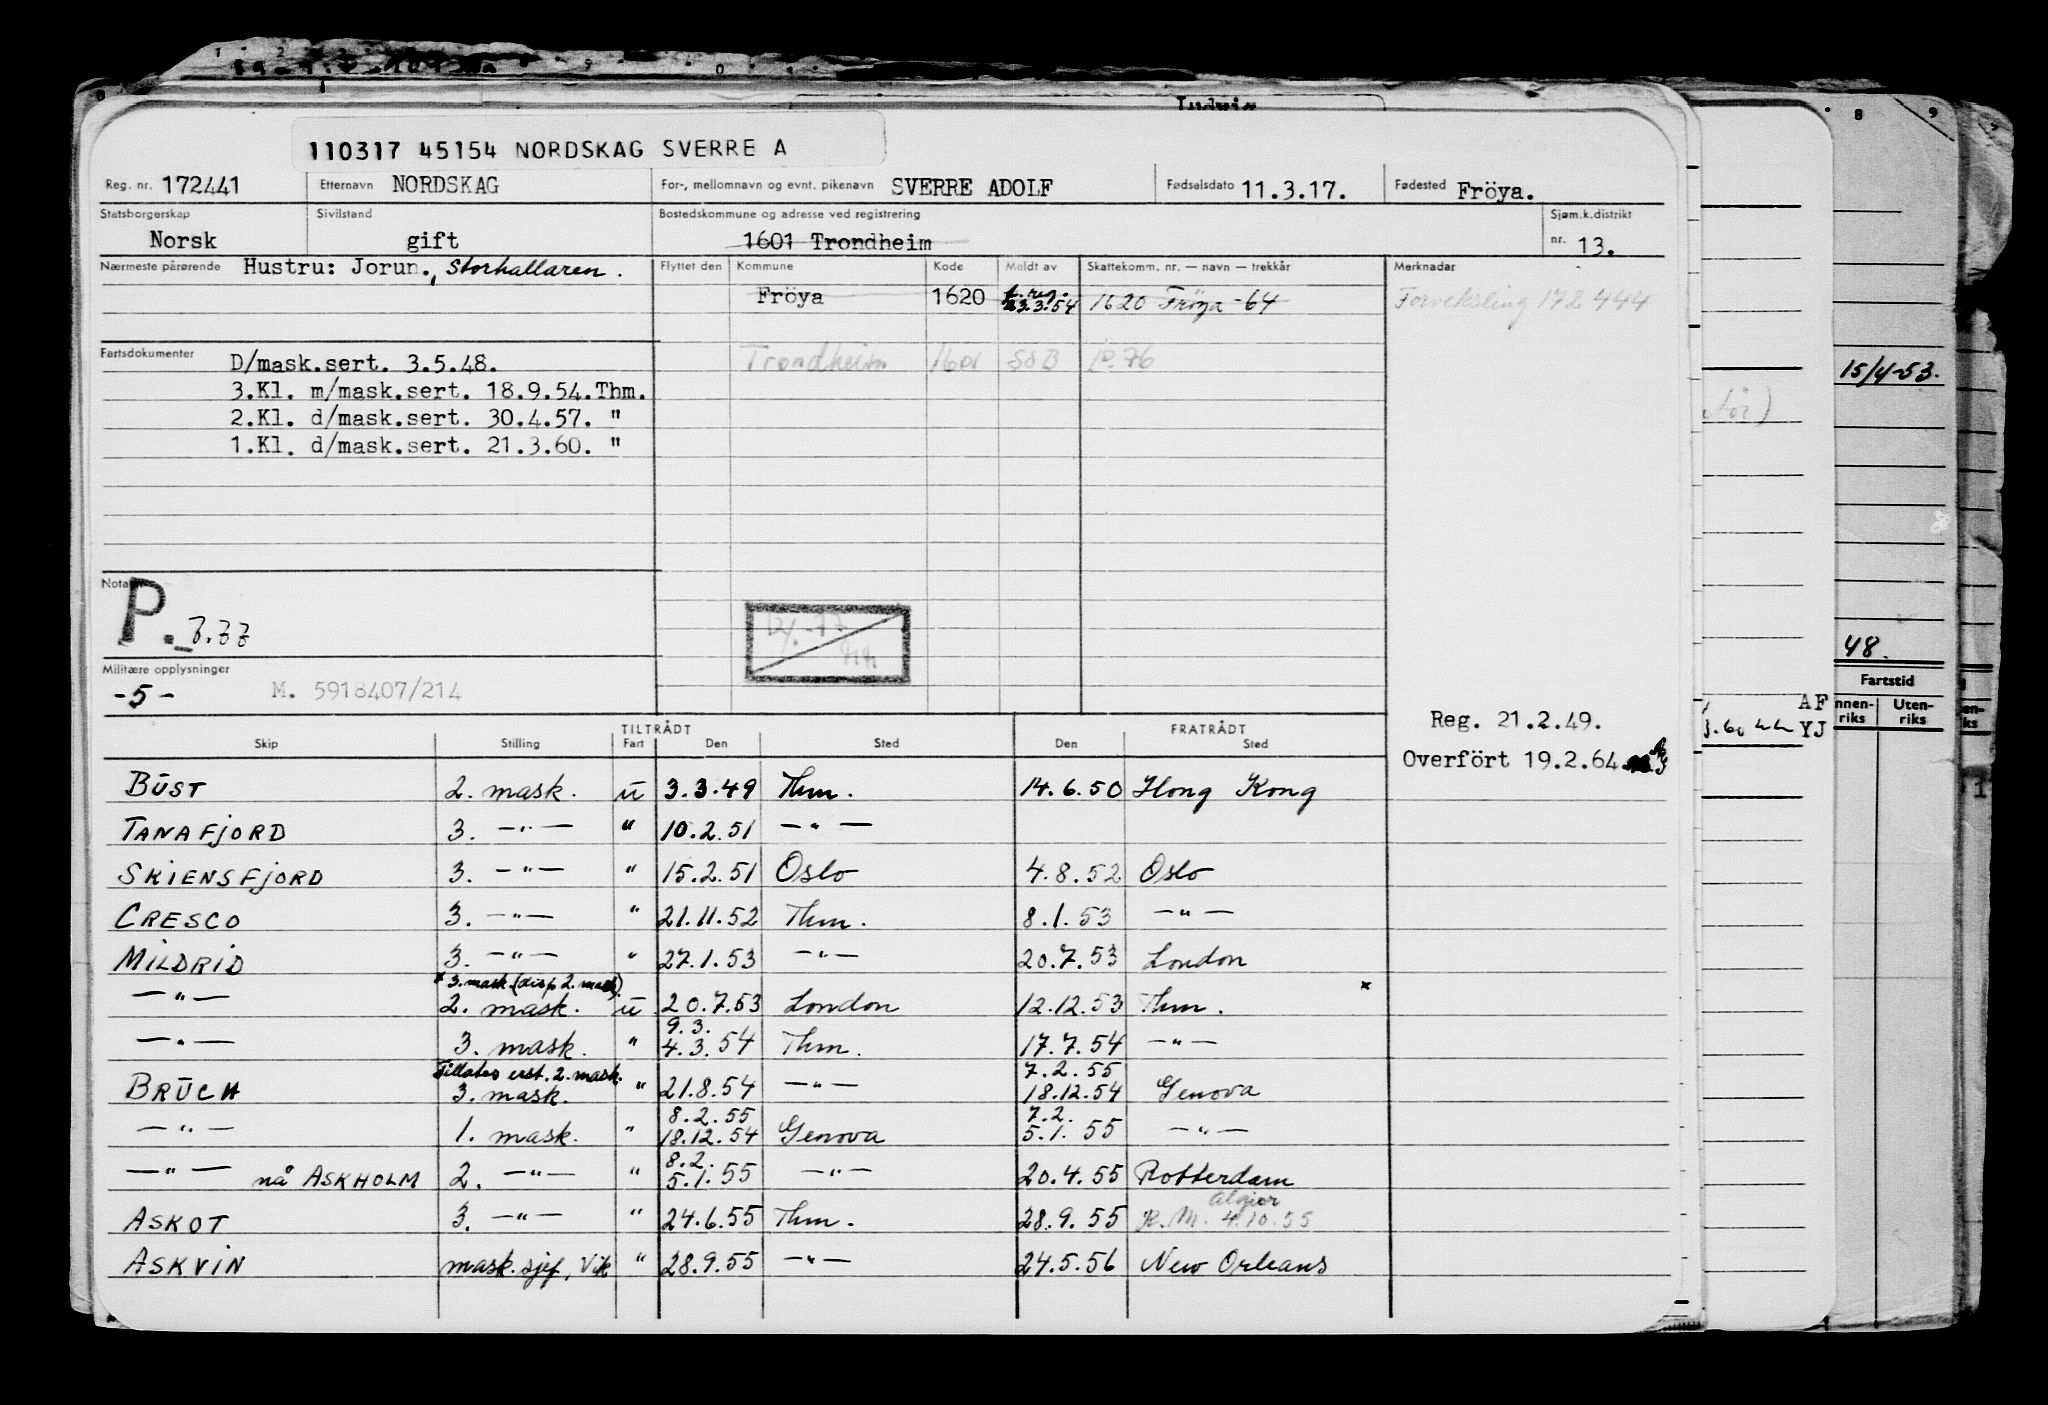 Ludvig
110317 45154 NORDSKAG SVERRE A
Reg. nr. 172441 Etternavn NORDSKAG For-, mellomnavn og evnt. pikenavn SVERRE ADOLF Fødselsdato 11.3.17. Fødested Fröya.
Statsborgerskap Sivilstand Bostedskommune og adresse ved registrering Sjøm.k.distrikt
Norsk gift 1601 Trondheim nr. 13.
Nærmeste pårørende Hustru: Jorun., Storhallaren. Flyttet den Kommune Kode Meldt av Skattekomm. nr. — navn — trekkår Merknadar
Fröya 1620 f. reg. 23.3.54 1620 Fröya -64 Forveksling 172 444
Fartsdokumenter D/mask.sert. 3.5.48. Trondheim 1601 SSB p. 76
3.Kl. m/mask.sert. 18.9.54.Thm.
2.Kl. d/mask.sert. 30.4.57. "
1.Kl. d/mask.sert. 21.3.60. "
P. 7.77
Militære opplysninger
-5- M. 5918407/214
Reg. 21.2.49.
Overfört 19.2.64
TILTRÅDT FRATRÅDT
Skip Stilling Fart Den Sted Den Sted
BUST 2. mask. u 3.3.49 Thm. 14.6.50 Hong Kong
TANAFJORD 3. —"— " 10.2.51 —"—
SKIENSFJORD 3. —"— " 15.2.51 Oslo 4.8.52 Oslo
CRESCO 3. —"— " 21.11.52 Thm. 8.1.53 —"—
MILDRID 3. —"— " 27.1.53 —"— 20.7.53 London
x 3. mask. (disp 2. mask). x
—"— 2. mask. u 20.7.53 London 12.12.53 Thm.
9.3.
—"— 3. mask. " 4.3.54 Thm. 17.7.54 —"—
Tillates erst. 2. mask. 7.2.55
BRUCH 3. mask. " 21.8.54 —"— 18.12.54 Genova
8.2.55 7.2.
—"— 1. mask. " 18.12.54 Genova 5.1.55 —"—
8.2.
—"— nå ASKHOLM 2. —"— " 5.1.55 —"— 20.4.55 Rotterdam
Algier
ASKOT 3. —"— " 24.6.55 Thm. 28.9.55 R. M. 4.10.55
ASKVIN mask.sjef, Vik " 28.9.55 —"— 24.5.56 New Orleans
15/4-53.
48.
Fartstid
Uten-
riks riks
AF
YJ